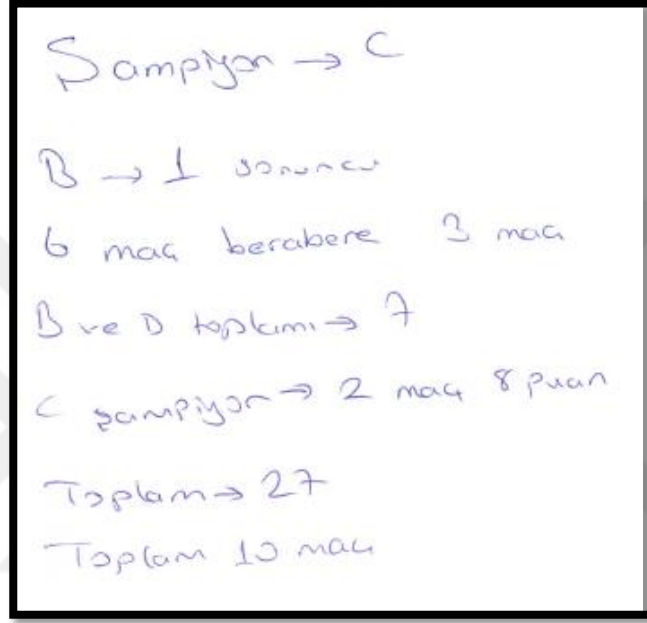 Şampiyon → C
B → 1 sonuncu
6 maç berabere 3 maç
B ve D toplamı → 7
C şampiyon → 2 maç 8 puan
Toplam → 27
Toplam 10 maç